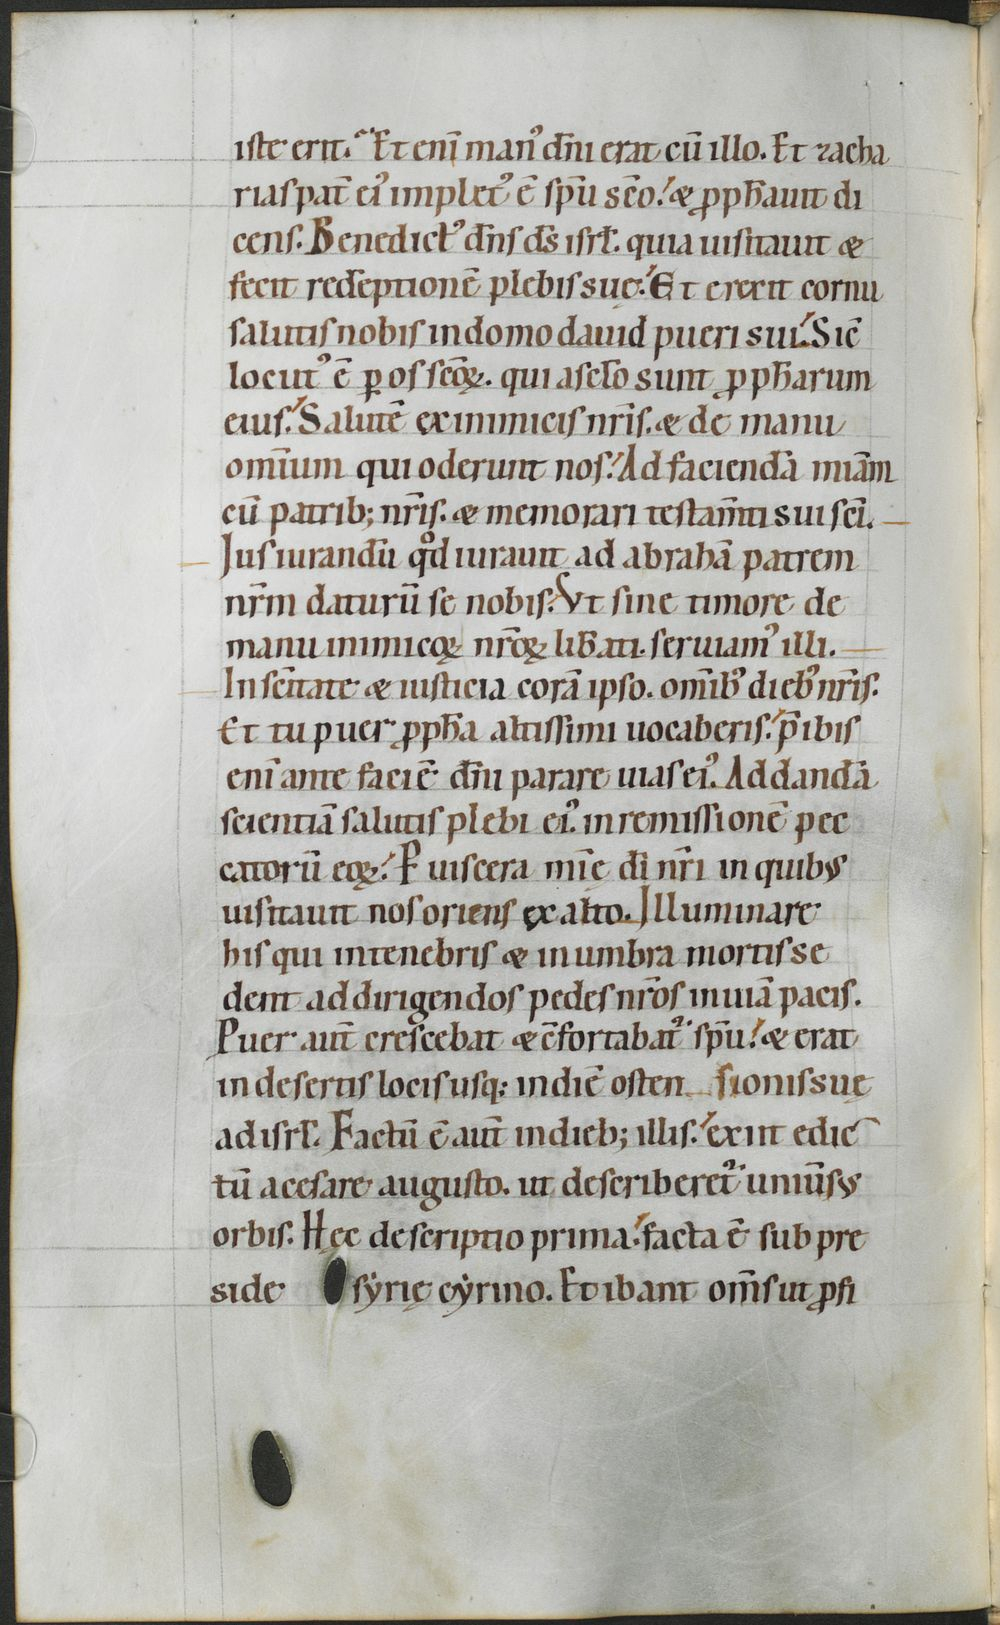 iste erit. Et eni̅ manꝰ dn̅i erat cu̅ illo. Et zacha
rias pat̅ eiꝰ impletꝰ e̅ spu̅ sc̅o. & ꝓph̅auit di
cens. Benedictꝰ dn̅s ds̅ isrl̅. quia uisitauit &
fecit rede̅ptione̅ plebis suę. Et erexit cornu
salutis nobis in domo dauid pueri sui. Sic̅
locutꝰ e̅ ꝑ os sc̅oꝝ. qui a sc̅lo sunt ꝓpharum
eius. Salute̅ ex inimicis nr̅is. & de manu
omniu̅m qui oderunt nos. Ad facienda̅ mia̅m
cu̅ patrib; nr̅is. & memorari testam̅ti sui sc̅i.
Jusiurandu̅ qd̊ iurauit ad abraha̅ patrem
nr̅m daturu̅ se nobis. Vt sine timore de
manu inimicoꝝ nr̅oꝝ lib̅ati. seruiamꝰ illi.
In sc̅itate & iusticia cora̅ ipso. omi̅bꝰ diebꝰ nr̅is.
Et tu puer ꝓph̅a altissimi uocaberis. p̅ibis
eni̅ ante facie̅ dn̅i parare uias eiꝰ. Ad danda̅
scientia̅ salutis plebi eiꝰ. in remissione̅ pec
catoru̅ eoꝝ. P uiscera mi̅ę di̅ nr̅i in quibus
uisitauit nos oriens ex alto. Illuminare
his qui in tenebris & in umbra mortis se
dent ad dirigendos pedes nr̅os in uia̅ pacis.
Puer aut̅ crescebat & c̅fortabatꝰ spu̅. & erat
in desertis locis usq; in die̅ osten sionis suę
ad isrl̅. Factu̅ e̅ aut̅ in dieb; illis. exiit edic
tu̅ a cesare augusto. ut describeretꝰ uniu̅sus
orbis. Hęc descriptio prima. facta e̅ sub pre
side syrię cyrino. Et ibant om̅s ut ꝓfi